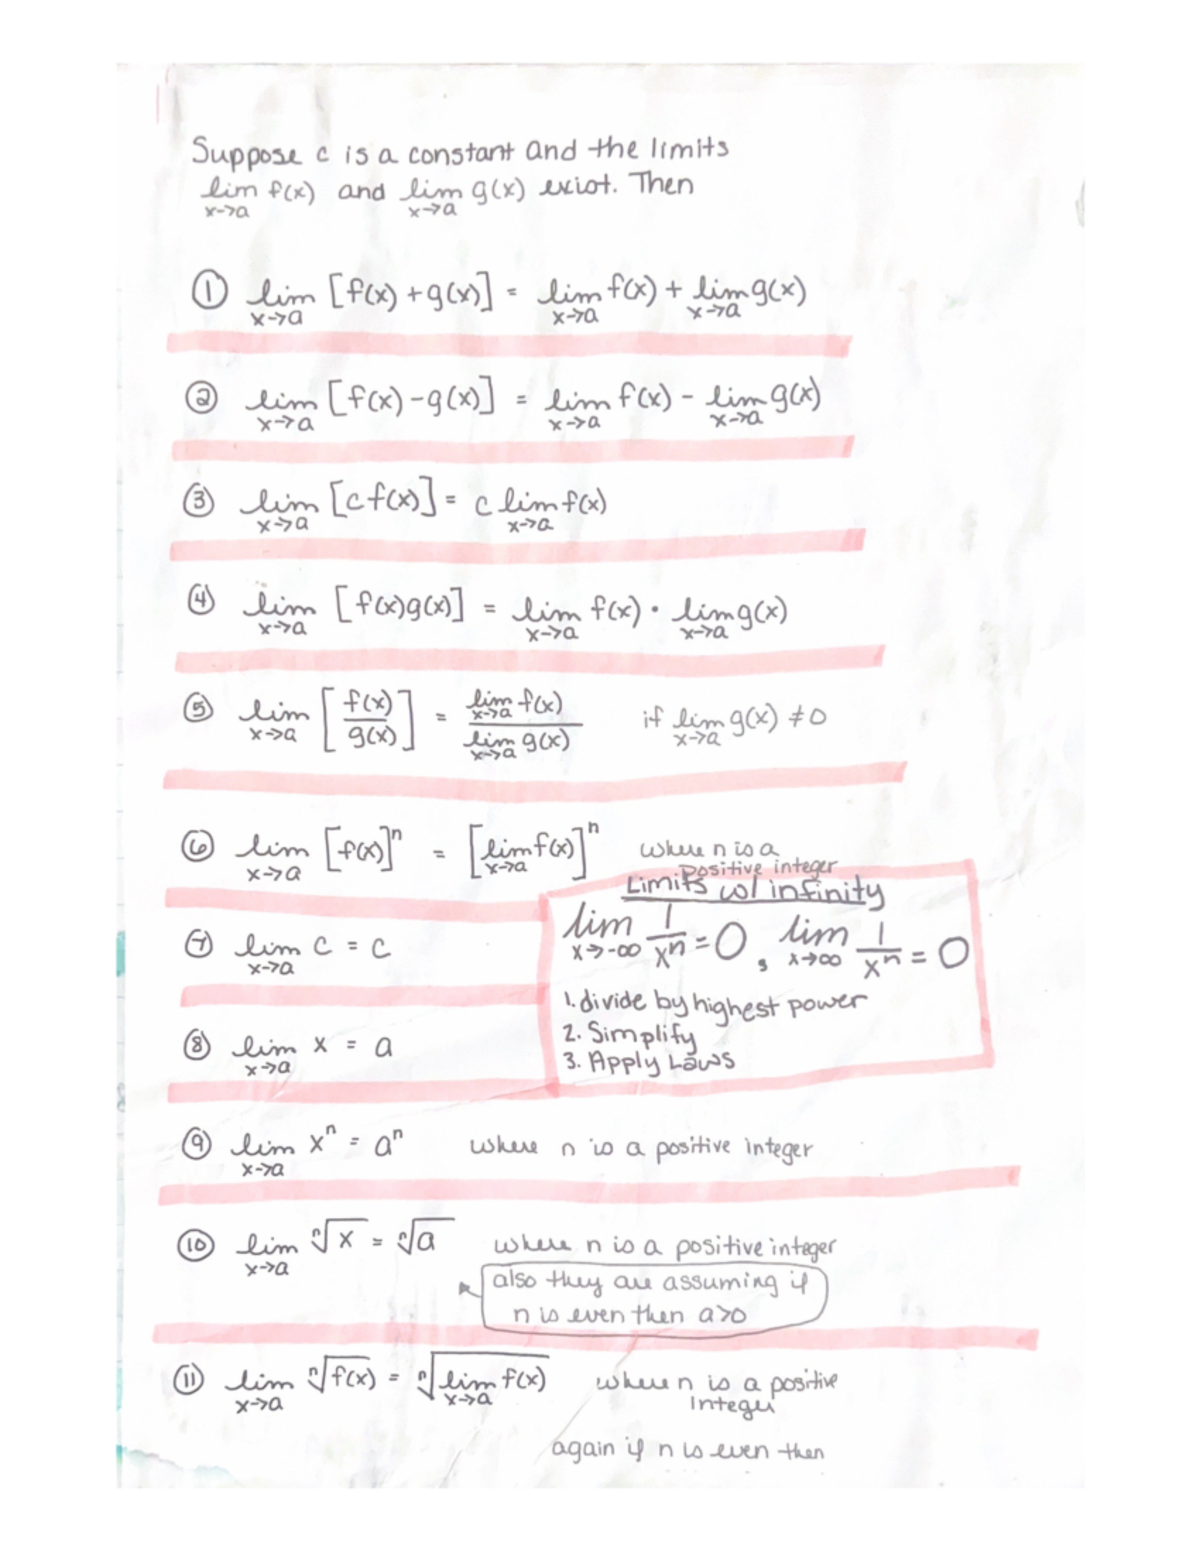 Suppose c is a constant and the limits
lim x→a f(x) and lim x→a g(x) exist. Then
① lim x→a [f(x) + g(x)] = lim x→a f(x) + lim x→a g(x)
② lim x→a [f(x) - g(x)] = lim x→a f(x) - lim x→a g(x)
③ lim x→a [c f(x)] = c lim x→a f(x)
④ lim x→a [f(x)g(x)] = lim x→a f(x) · lim x→a g(x)
⑤ lim x→a [f(x)/g(x)] = lim x→a f(x) / lim x→a g(x) if lim x→a g(x) ≠ 0
⑥ lim x→a [f(x)]ⁿ = [lim x→a f(x)]ⁿ where n is a
positive integer
Limits w/ infinity
lim x→-∞ 1/xⁿ = 0, lim x→∞ 1/xⁿ = 0
1. divide by highest power
2. Simplify
3. Apply Laws
⑦ lim x→a c = c
⑧ lim x→a x = a
⑨ lim x→a xⁿ = aⁿ where n is a positive integer
⑩ lim x→a ⁿ√x = ⁿ√a where n is a positive integer
also they are assuming if
n is even then a>0
⑪ lim x→a ⁿ√f(x) = ⁿ√lim x→a f(x) where n is a positive
Integer
again if n is even then